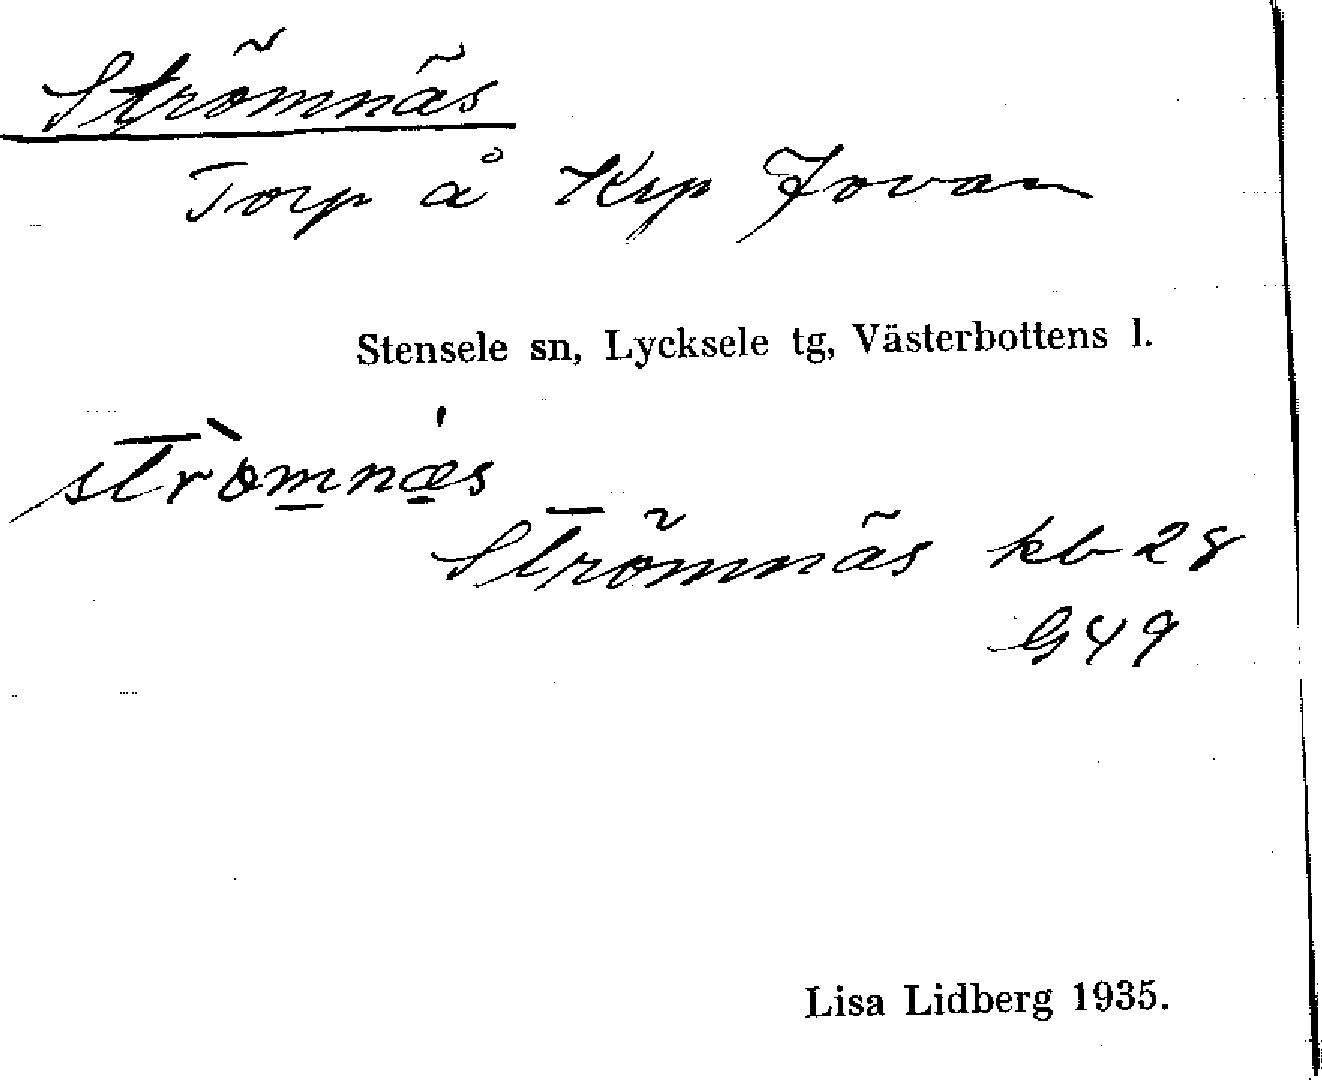 Strömnäs
Torp å Krp Jovan
Stensele sn, Lycksele tg, Västerbottens l.
stròmnæ's
Strömnäs kb 28
G49
Lisa Lidberg 1935.